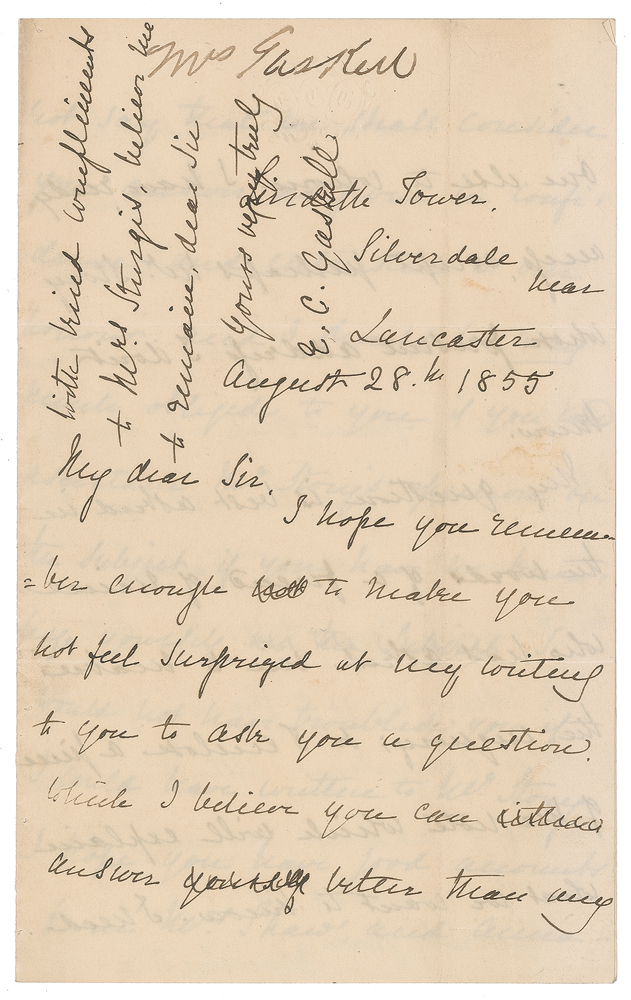 Mrs Gaskell
Lindeth Tower.
Silverdale
near
Lancaster
August 28.th 1855
My dear Sir.
I hope you remem-
=ber enough not to make you
not feel surprized at my writing
to you to ask you a question.
which I believe you can either
answer yourself better than any
With kind compliments
to Mrs Sturgis, believe me
to remain, dear Sir
Yours very truly
E. C. Gaskell